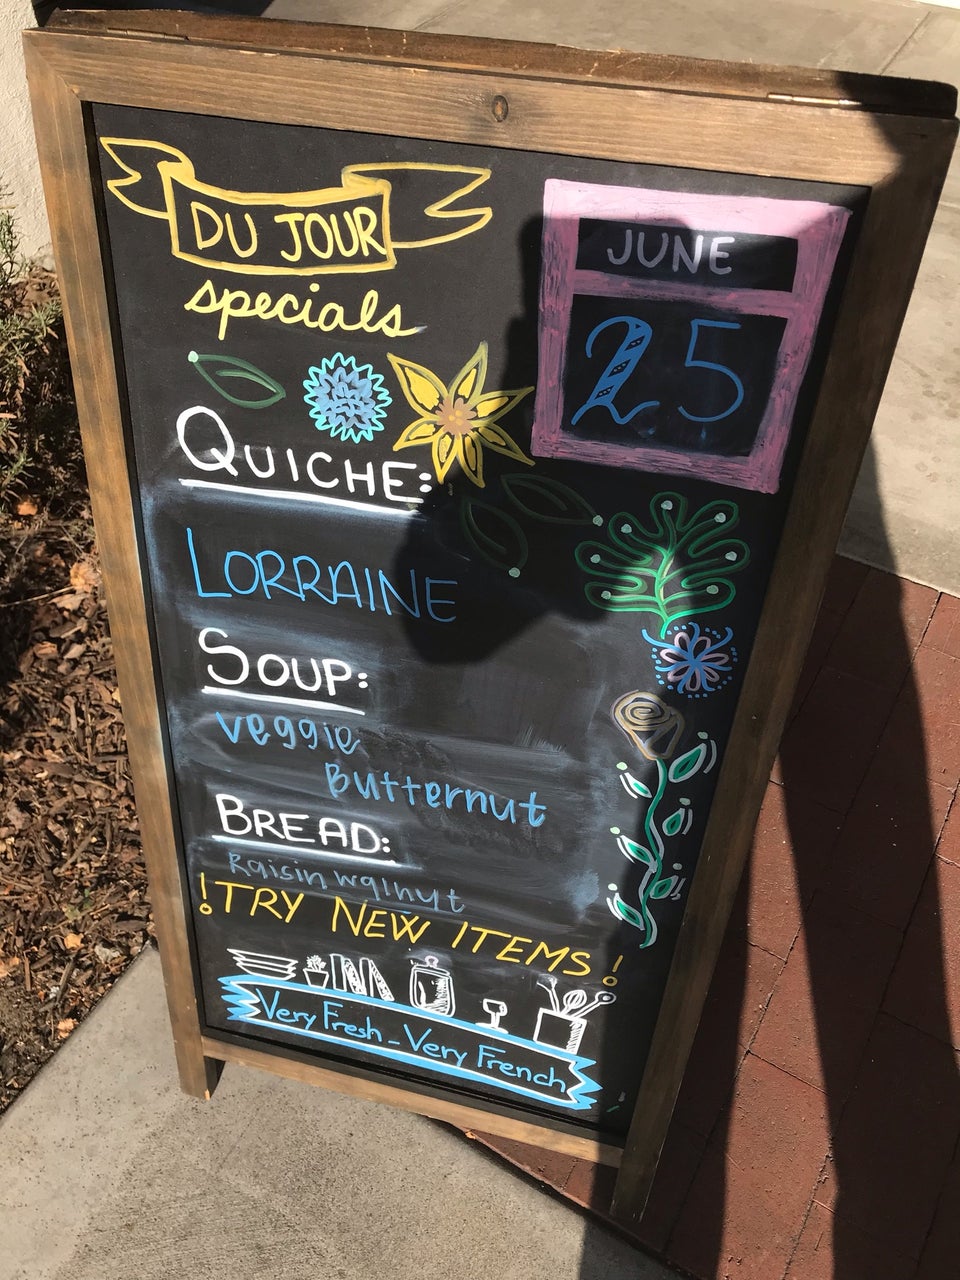 DU JOUR
specials
JUNE
25
QUICHE:
LORRAINE
SOUP:
veggie
Butternut
BREAD:
Raisin walnut
!TRY NEW ITEMS!
Very Fresh - Very French